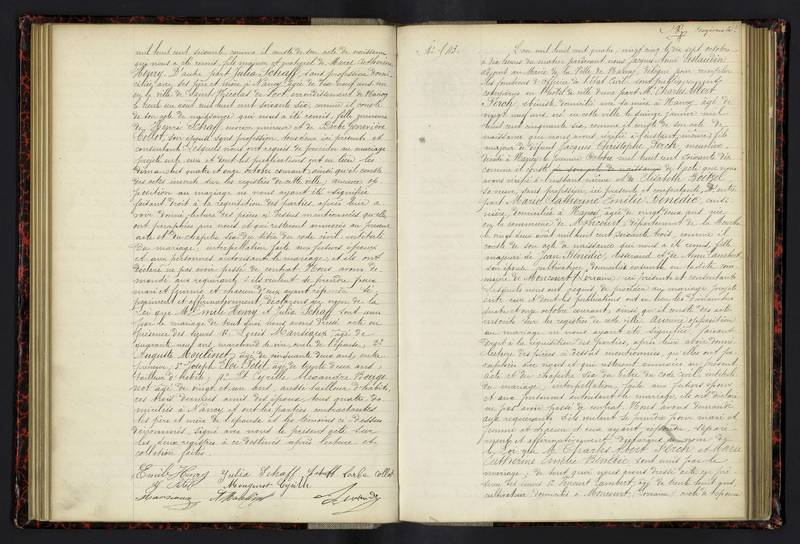 mil huit cent soixante, comme il conste de son acte de naissance
qui nous a été remis, fils majeur et
Henry. D'autre part Julia Schaff, sans profession domi
ciliée avec ses père et mère à Nancy âgée de dix neuf ans, née
en la ville de Saint Nicolas de Port, arrondissement de Nancy
le mil huit cent soixante six, comme il conste
de son acte de naissance qui nous a été remis, fille mineure
de Schaff, ouvrier mineur et de Barbe
Collot son épouse sans profession, tous deux ici présents et
consentants. Lesquels nous ont requis de procéder au mariage
projeté entre eux et dont les publications ont eu lieu les
dimanches quatre et onze octobre courant, ainsi qu'il conste
des actes inscrits sur les registres de cette ville; aucune op
position au mariage ne nous ayant été signifiée
faisant droit à la réquisition des parties, après leur a
voir donné lecture des pièces ci dessus mentionnées qu'elles
ont paraphées avec nous et qui resteront annexées au présent
acte et du chapitre six du titre du code civil, intitulé
du mariage, interpellation faite aux futurs époux
et aux personnes autorisant le mariage, et ils ont
déclaré ne pas avoir passé de contrat. Nous avons de
mandé aux requérants s'ils veulent se prendre pour
mari et femme et chacun d'eux ayant répondu sé
parément et affirmativement, déclarons au nom de la
Loi que M. Emile Henry et Julia Schaff sont unis
par le mariage de tout quoi nous avons dressé acte en
présence des sieurs 1° Louis Marsiaux âgé de
quarante neuf ans, marchand de vin, oncle de l'épouse, 2°
Auguste Moutinet, âgé de cinquante deux ans, entre
preneur, 3° Joseph Petit, âgé de trente deux ans
tailleur d'habits, 4° et Cyrille Alexandre
âgé de vingt et un ans, aussi tailleur d'habits,
ces trois derniers amis des époux, tous quatre do
miciliés à Nancy et ont les parties contractantes
les père et mère de l'épouse et les témoins ci dessus
dénommés, signé avec nous le présent acte sur
les deux registres à ce destinés après lecture et
collation faites.
Emile Henry Julia Schaff Schaff Barbe Collot
J Petit
Marsiaux
N° 413.
L'an mil huit cent quatre vingt cinq le vingt sept octobre
à dix heures du matin, pardevant nous Jacques
adjoint au Maire de la Ville de Nancy, délégué pour remplir
les fonctions d'officier de l'état civil, sont publiquement
comparus en l'hôtel de ville d'une part M. Charles Albert
Ferch, domicilié avec sa mère à Nancy âgé de
vingt neuf ans, né en cette ville le quinze janvier mil
huit cent cinquante six, comme il conste de son acte de
naissance que nous avons vérifié à l'instant même; fils
majeur de défunt Jacques Christophe Ferch, menuisier
décédé à Nancy le octobre mil huit cent soixante dix
comme il conste de l'acte que nous
avons vérifié à l'instant même, et de Elisabeth
sa veuve, sans profession, ici présente et consentante. D'autre
part Marie Catherine Emilie Benedic, cuisi
nière, domiciliée à Nancy, âgée de vingt deux ans, née
en la commune de Moncourt, département de la Meurthe
le vingt deux avril mil huit cent soixante trois, comme il
conste de son acte de naissance qui nous a été remis, fille
majeure de Jean Benedic, tisserand et de Anne Lambert
son épouse domiciliés ensemble en ladite com
mune de Moncourt (Lorraine) ici présents et consentants
Lesquels nous ont requis, de procéder au mariage projeté
entre eux et dont les publications ont eu lieu les dimanches
quatre et onze octobre courant, ainsi qu'il conste des actes
inscrits sur les registres de cette ville. Aucune opposition
au mariage ne nous ayant été signifiée, faisant
droit à la réquisition des parties, après leur avoir donné
lecture des pièces ci dessus mentionnées, qu'elles ont pa
raphées avec nous et qui resteront annexées au présent
acte et du chapitre six du titre du code civil intitulé
du mariage, interpellation faite aux futurs époux
et aux personnes autorisant le mariage, ils ont déclaré
ne pas avoir passé de contrat. Nous avons demandé
aux requérants s'ils veulent se prendre pour mari et
femme et chacun d'eux ayant répondu sépare
ment et affirmativement déclarons au nom de
la Loi que M. Charles Albert Ferch et Marie
Catherine Emilie Benedic sont unis par le
mariage; de tout quoi nous avons dressé acte en pré
sence des sieurs 1° Lambert, âgé de trente huit ans,
cultivateur, domicilié à Moncourt, Lorraine, oncle de l'épouse